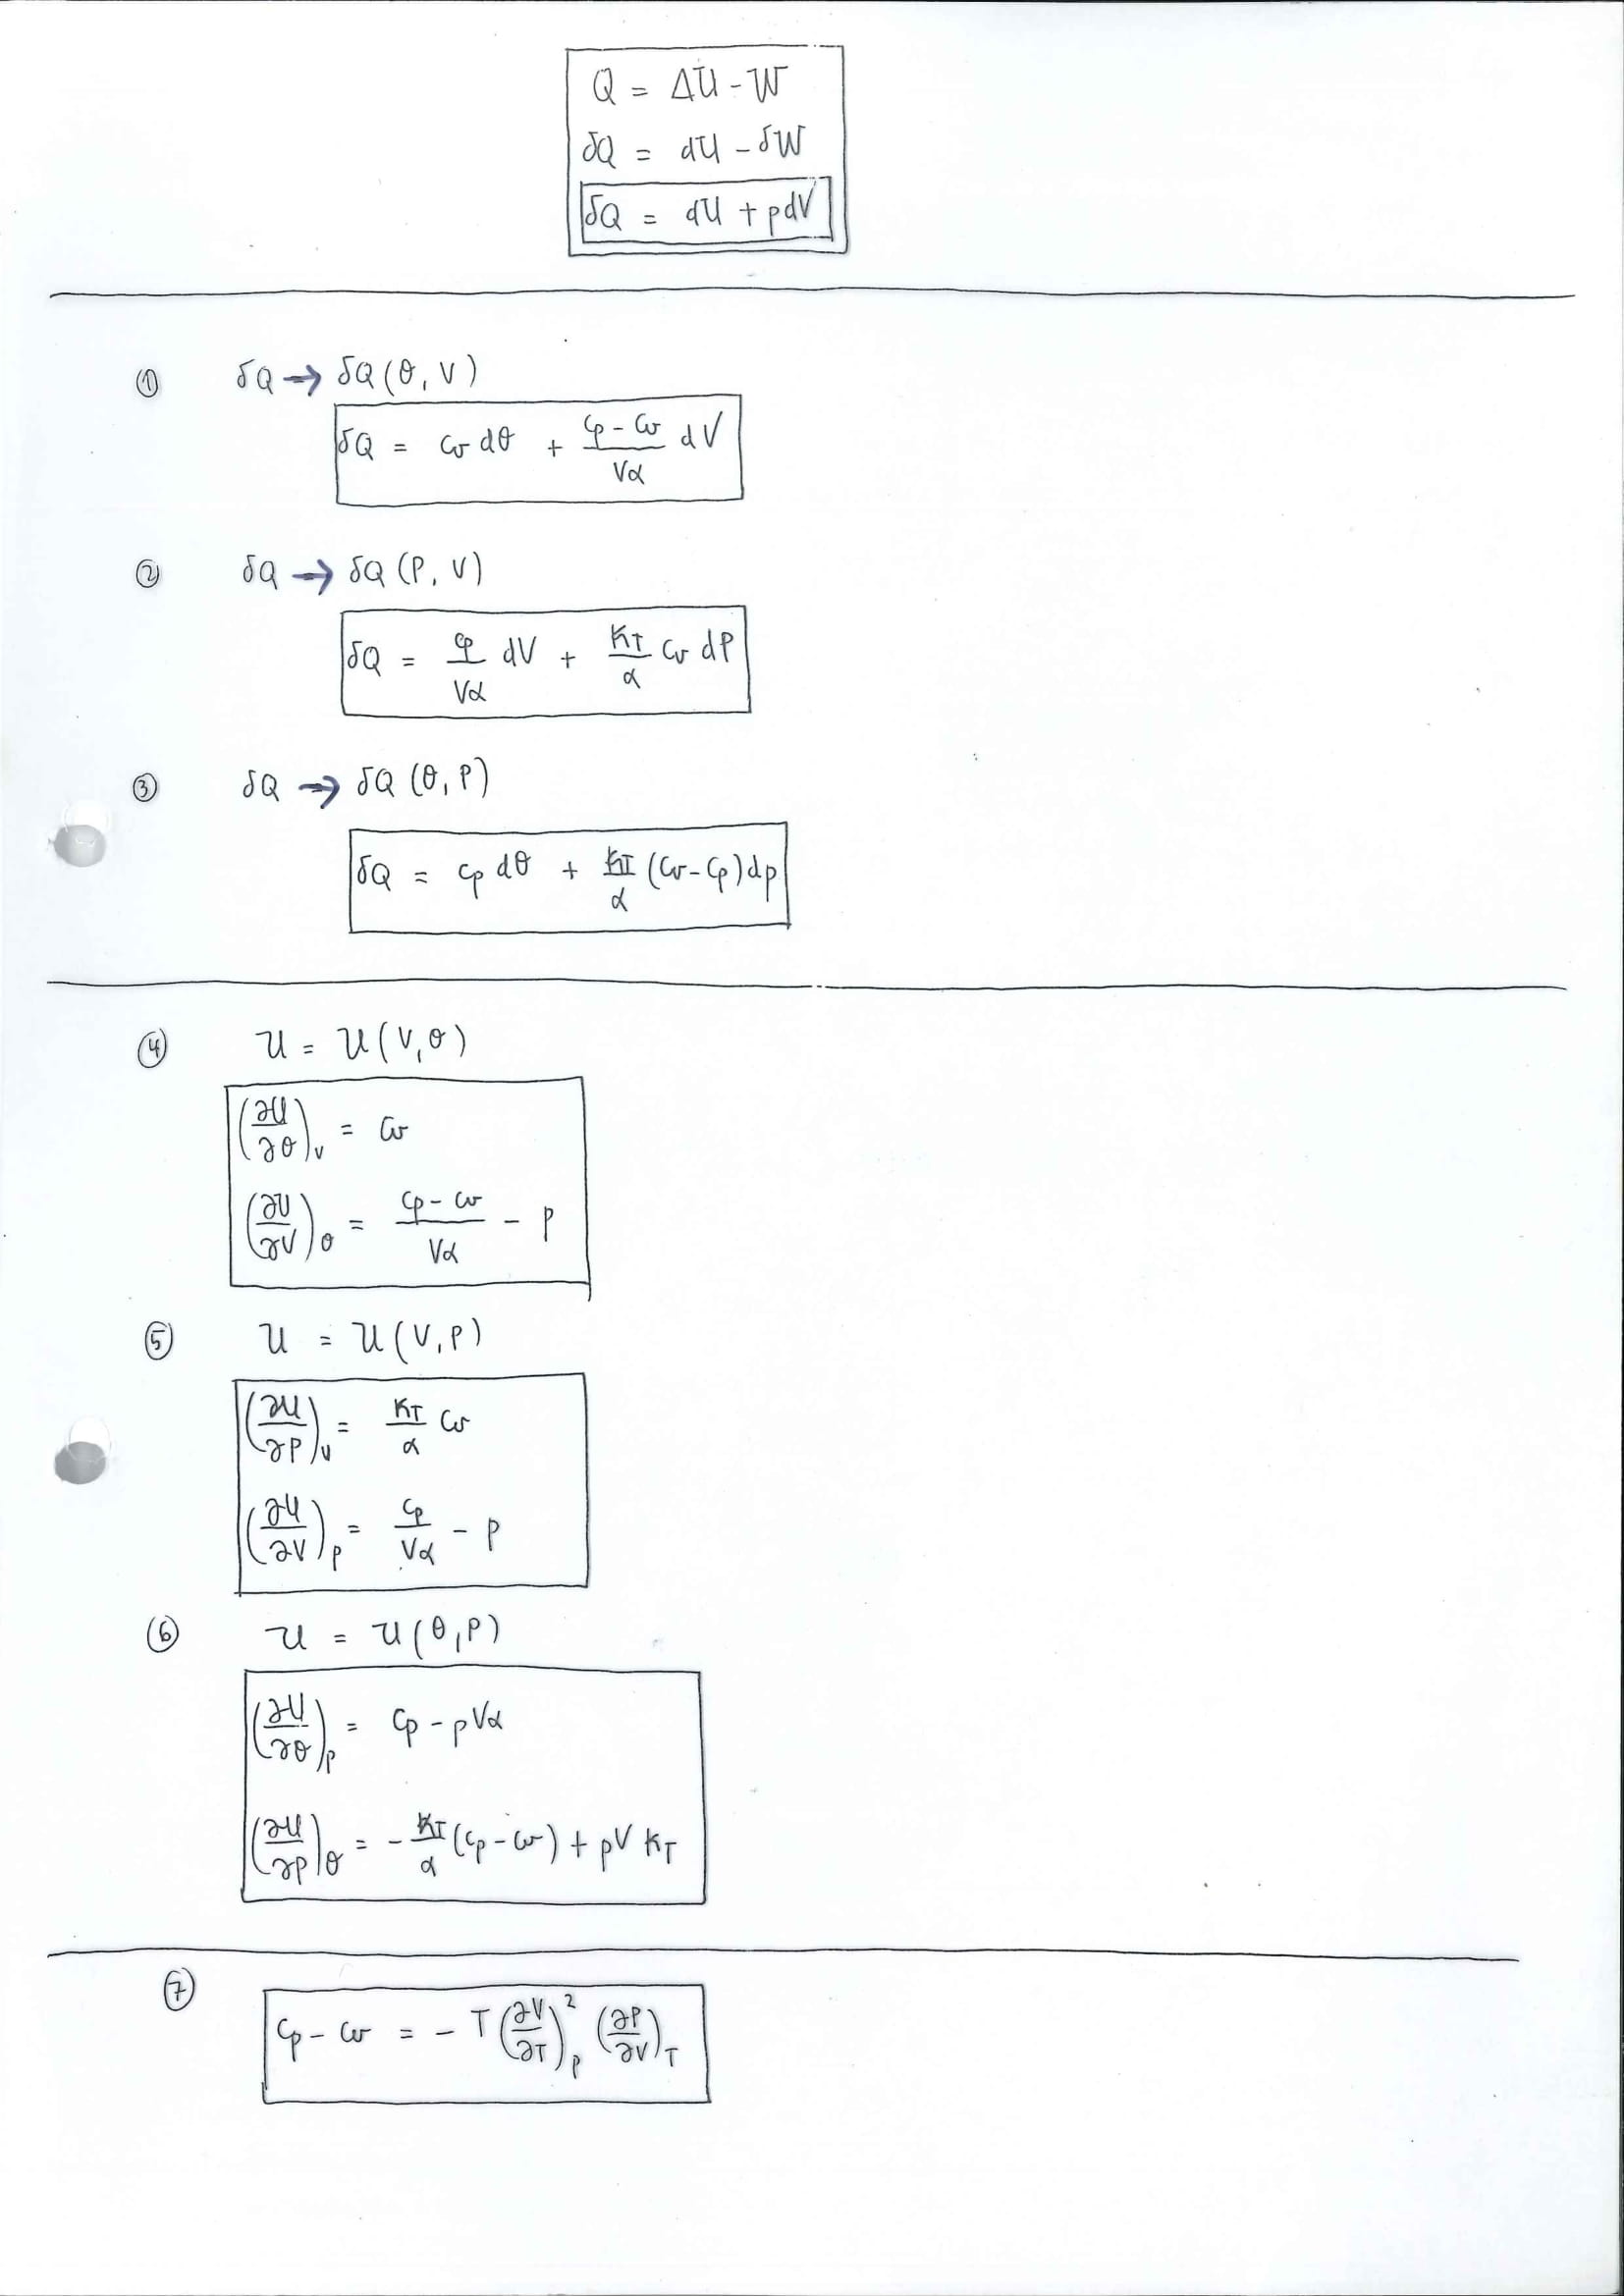 Q = ΔU - W
δQ = dU - δW
δQ = dU + pdV
① δQ → δQ(θ, V)
δQ = Cv dθ + (Cp - Cv)/(Vα) dV
② δQ → δQ (P, V)
δQ = Cp/(Vα) dV + KT/α Cv dP
③ δQ → δQ (θ, P)
δQ = Cp dθ + KT/α (Cv - Cp) dp
④ U = U(V, θ)
(∂U/∂θ)V = Cv
(∂U/∂V)θ = (Cp - Cv)/(Vα) - P
⑤ U = U(V, P)
(∂U/∂P)V = KT/α Cv
(∂U/∂V)P = Cp/(Vα) - P
⑥ U = U(θ, P)
(∂U/∂θ)P = Cp - pVα
(∂U/∂P)θ = - KT/α (Cp - Cv) + pV KT
⑦ Cp - Cv = - T (∂V/∂T)P² (∂P/∂V)T